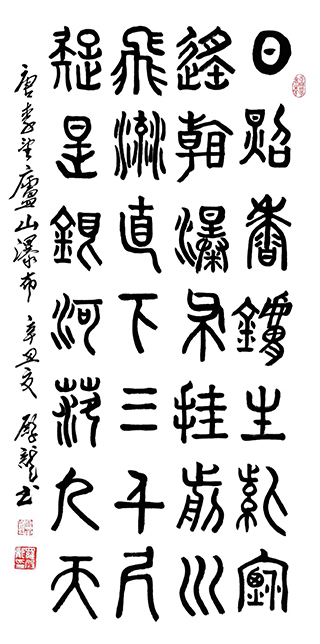 日照香鑪生紫煙
遙看瀑布挂前川
飛流直下三千尺
疑是銀河落九天
唐李望廬山瀑布 辛丑夏 龍書